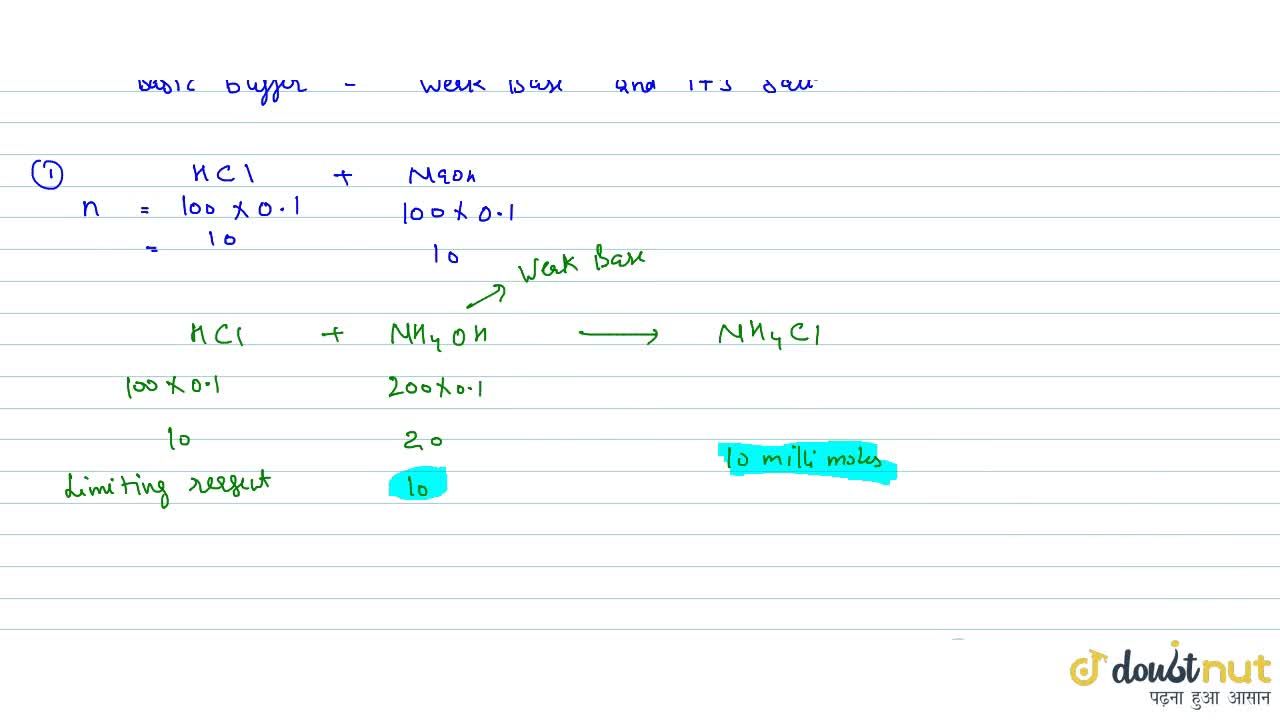 Basic Buffer - Weak Base and its Salt
① HCl + NaOH
n = 100 × 0.1 100 × 0.1
= 10 10
Weak Base
HCl + NH4OH ⟶ NH4Cl
100 × 0.1 200 × 0.1
10 20
10 milli moles
Limiting reagent 10
doubtnut
पढ़ना हुआ आसान